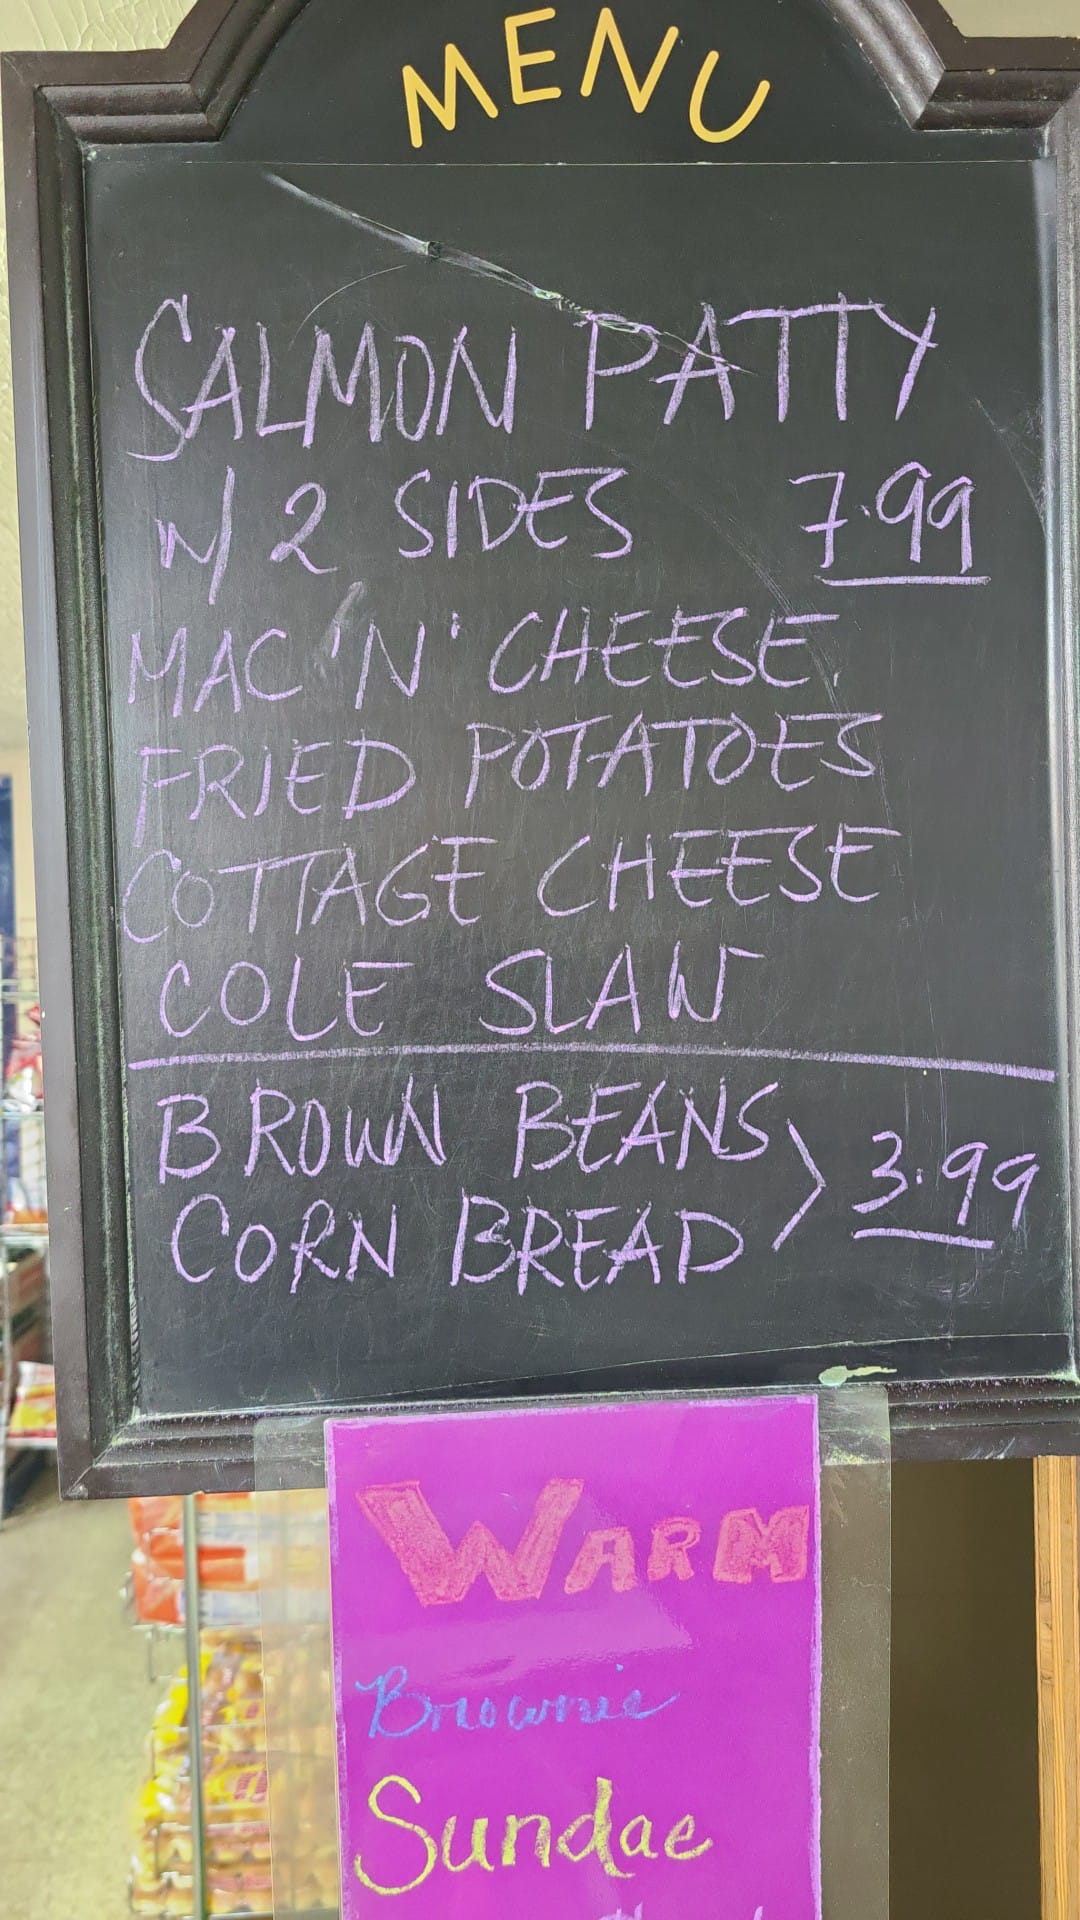 MENU
SALMON PATTY
W/ 2 SIDES 7.99
MAC 'N' CHEESE.
FRIED POTATOES
COTTAGE CHEESE
COLE SLAW
BROWN BEANS
CORN BREAD > 3.99
WARM
Brownie
Sundae